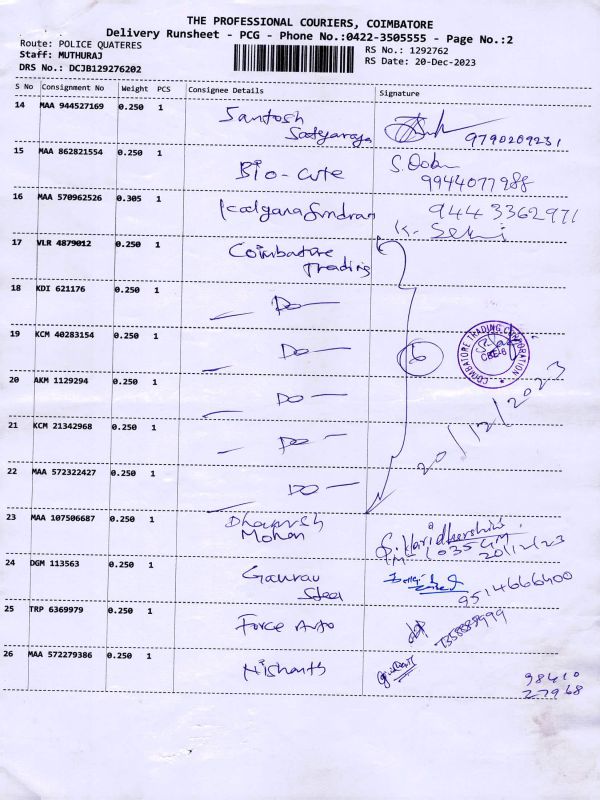 THE PROFESSIONAL COURIERS, COIMBATORE
Delivery Runsheet - PCG - Phone No.:0422-3505555 - Page No.:2
Route: POLICE QUATERES
RS No.: 1292762
Staff: MUTHURAJ
RS Date: 20-Dec-2023
DRS No.: DCJB129276202
S No Consignment No Weight PCS Consignee Details Signature
14 MAA 944527169 0.250 1 Santosh
Sathyaraja 9790209231
15 MAA 862821554 0.250 1 Bio-cute S.
9944077988
16 MAA 570962526 0.305 1 Kalyanasundram 9443362971
K. Selvi
17 VLR 4879012 0.250 1 Coimbatore
Trading
18 KDI 621176 0.250 1 Do
19 KCM 40283154 0.250 1 Do 6
COIMBATORE TRADING CORPORATION
CBE-18
20 AKM 1129294 0.250 1 Do
20/12/2023
21 KCM 21342968 0.250 1 Do
22 MAA 572322427 0.250 1 Do
23 MAA 107506687 0.250 1
Mohan S. Haridharshini
20/12/23
24 DGM 113563 0.250 1 Gaurav
Steel 9514666400
25 TRP 6369979 0.250 1 Force Auto
26 MAA 572279386 0.250 1 Nishanth
98410
27968